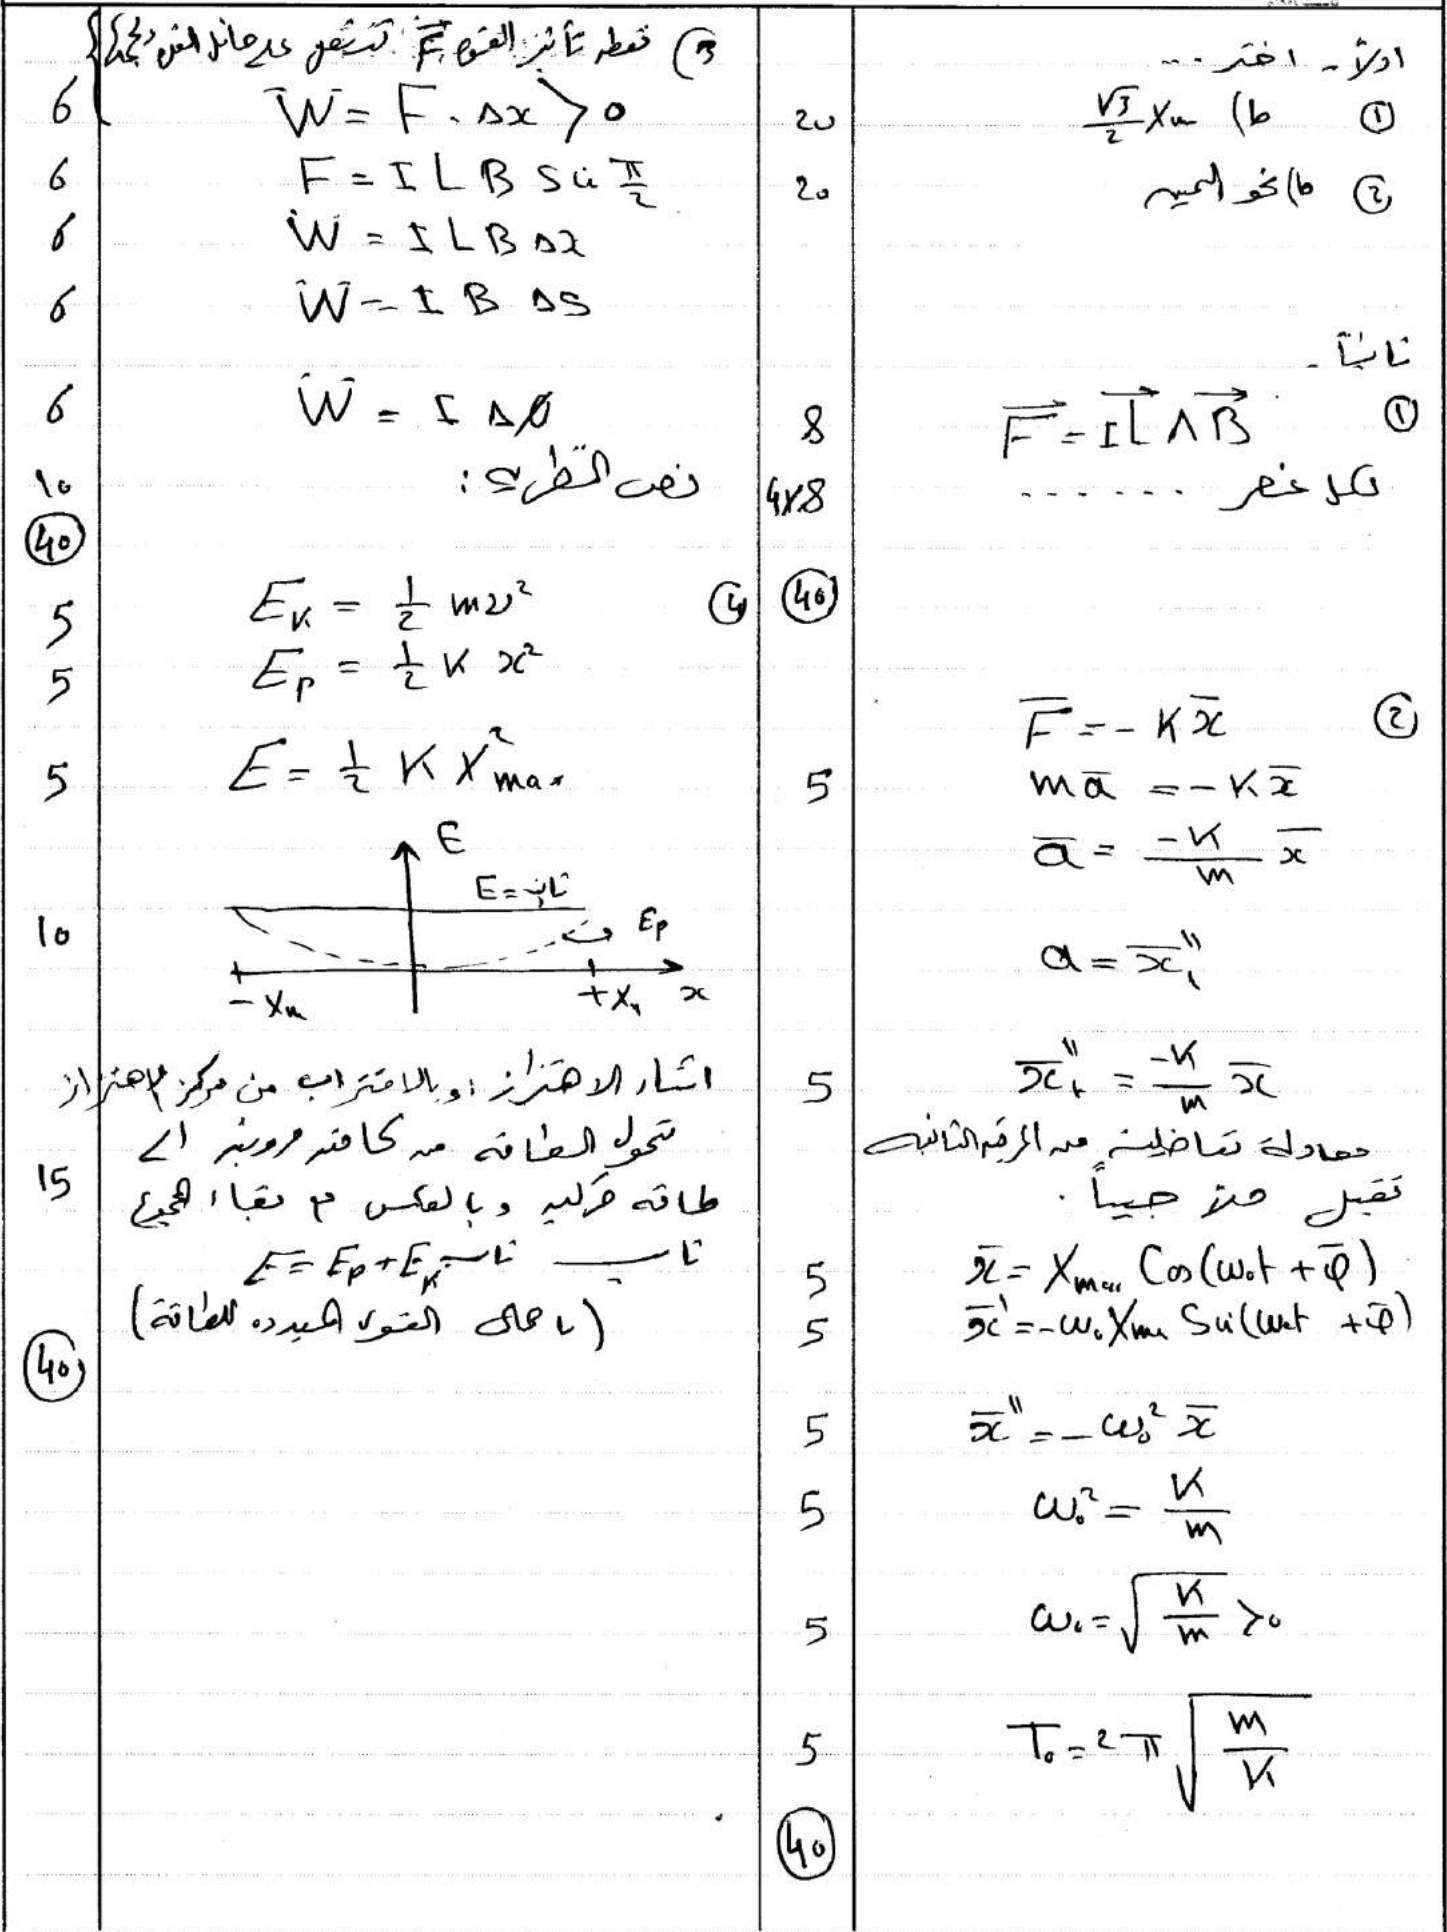 اولاً - اختر ...
① b) √3/2 Xm 20
② b) نحو اليمين 20
ثانياً -
① F = I L Λ B 8
لكل عنصر ....... 4x8
40
② F = - K x
m a = - K x 5
a = -K/m x
a = x''t
x''t = -K/m x 5
معادلة تفاضلية من المرتبة الثانية
تقبل حلاً جيبياً .
x = Xmax Cos(ω₀t + φ) 5
x' = -ω₀ Xm Sin(ω₀t + φ) 5
x'' = -ω₀² x 5
ω₀² = K/m 5
ω₀ = √(K/m) > 0 5
T₀ = 2π √(m/K) 5
40
③ نقطة تأثير القوة F تنتقل على حامل القوة
W = F . Δx > 0 6
F = I L B Sin π/2 6
W = I L B Δx 6
W = I B Δs 6
W = I Δø 6
نص النظرية : 10
40
④ E_K = 1/2 m v² 5
E_p = 1/2 K x² 5
E = 1/2 K X²max 5
E
E = ثابت
Ep
10
- Xm + Xm x
اثناء الاهتزاز وبالاقتراب من مركز الاهتزاز
تتحول الطاقة من كامنة مرونية الى
طاقة حركية وبالعكس مع بقاء المجموع 15
ثابت E = Ep + E_K = ثابت
(باهمال القوى المبددة للطاقة)
40